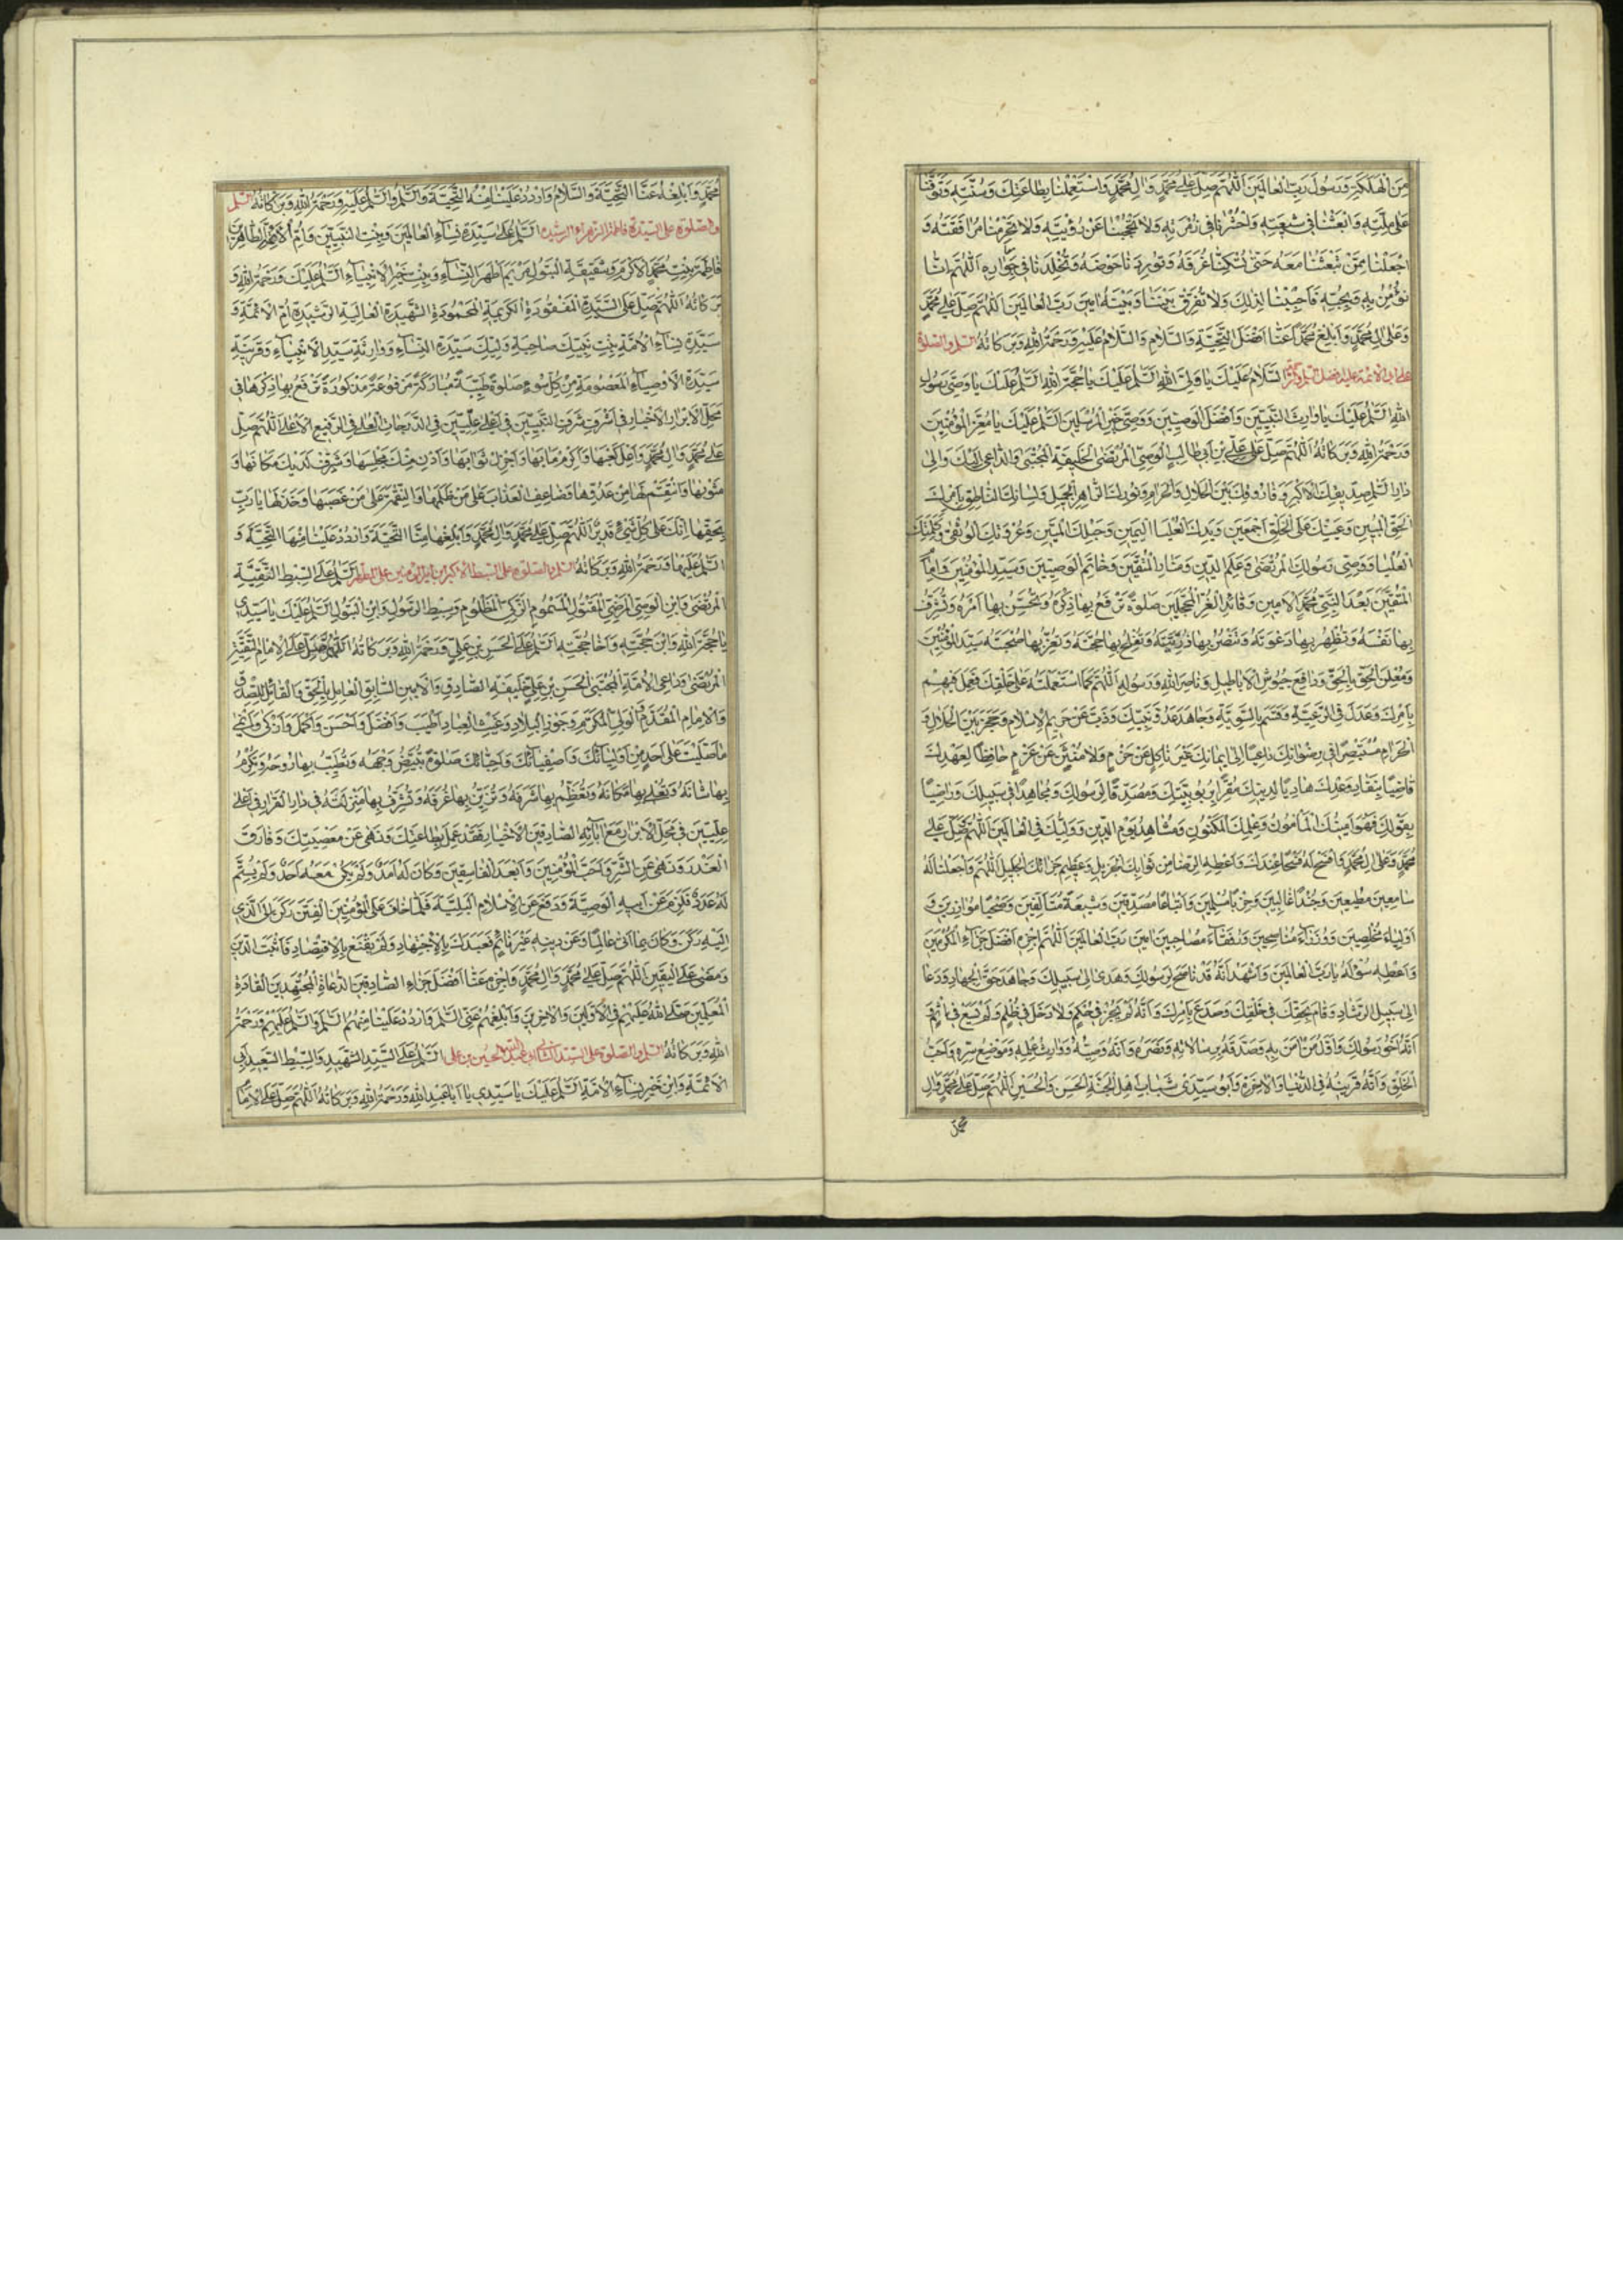 مِنَ الْهَلَكَةِ وَرَسُولَ رَبِّ الْعَالَمِينَ اَللّٰهُمَّ صَلِّ عَلٰى مُحَمَّدٍ وَاٰلِ مُحَمَّدٍ وَاسْتَعْمِلْنَا بِطَاعَتِكَ وَسُنَّتِهِ وَتَوَفَّنَا
عَلٰى مِلَّتِهِ وَابْعَثْنَا فِى شِيعَتِهِ وَاحْشُرْنَا فِى زُمْرَتِهِ وَلَا تَحْجُبْنَا عَنْ رُؤْيَتِهِ وَلَا تَحْرِمْنَا مُرَافَقَتَهُ وَ
اجْعَلْنَا مِمَّنْ تَبْعَثُنَا مَعَهُ حَتّٰى تُسْكِنَنَا غُرَفَهُ وَتُورِدَنَا حَوْضَهُ وَتُخَلِّدَنَا فِى جِوَارِهِ اَللّٰهُمَّ اِنَّا
نُؤْمِنُ بِهِ وَبِحُبِّهِ فَاَحِبَّنَا لِذٰلِكَ وَلَا تُفَرِّقْ بَيْنَنَا وَبَيْنَهُ اٰمِينَ رَبَّ الْعَالَمِينَ اَللّٰهُمَّ صَلِّ عَلٰى مُحَمَّدٍ
وَعَلٰى اٰلِ مُحَمَّدٍ وَاَبْلِغْ مُحَمَّدًا عَنَّا اَفْضَلَ التَّحِيَّةِ وَالسَّلَامِ وَالسَّلَامُ عَلَيْهِ وَرَحْمَةُ اللّٰهِ وَبَرَكَاتُهُ السلم والصلوة
على السَّلَامُ عَلَيْكَ يَا وَلِىَّ اللّٰهِ اَلسَّلٰمُ عَلَيْكَ يَا حُجَّةَ اللّٰهِ اَلسَّلٰمُ عَلَيْكَ يَا وَصِىَّ رَسُولِ
اللّٰهِ اَلسَّلٰمُ عَلَيْكَ يَا وَارِثَ النَّبِيِّينَ وَاَفْضَلَ الْوَصِيِّينَ وَوَصِىَّ خَيْرِ الْمُرْسَلِينَ اَلسَّلٰمُ عَلَيْكَ يَا مُعِزَّ الْمُؤْمِنِينَ
وَرَحْمَةُ اللّٰهِ وَبَرَكَاتُهُ اَللّٰهُمَّ صَلِّ عَلٰى عَلِىِّ بْنِ اَبِى طَالِبٍ الْوَصِىِّ الْمُرْتَضَى الْخَلِيفَةِ الْمُجْتَبٰى وَالدَّاعِى اِلَيْكَ وَاِلٰى
دَارِ السَّلٰمِ صِدِّيقِكَ الْاَكْبَرِ وَفَارُوقِكَ بَيْنَ الْحَلَالِ وَالْحَرَامِ وَنُورِكَ الظَّاهِرِ الْجَمِيلِ وَلِسَانِكَ النَّاطِقِ بِاَمْرِكَ
الْحَقِّ الْمُبِينِ وَعَيْنِكَ عَلَى الْخَلْقِ اَجْمَعِينَ وَيَدِكَ الْعُلْيَا الْيَمِينِ وَحَبْلِكَ الْمَتِينِ وَعُرْوَتِكَ الْوُثْقٰى وَكَلِمَتِكَ
الْعُلْيَا وَوَصِىِّ رَسُولِكَ الْمُرْتَضٰى وَعَلَمِ الدِّينِ وَمَنَارِ الْمُتَّقِينَ وَخَاتَمِ الْوَصِيِّينَ وَسَيِّدِ الْمُؤْمِنِينَ وَاِمَامِ
الْمُتَّقِينَ بَعْدَ النَّبِىِّ مُحَمَّدٍ الْاَمِينِ وَقَائِدِ الْغُرِّ الْمُحَجَّلِينَ صَلٰوةً تَرْفَعُ بِهَا ذِكْرَهُ وَتُحَسِّنُ بِهَا اَمْرَهُ وَتُشَرِّفُ
بِهَا نَفْسَهُ وَتُظْهِرُ بِهَا دَعْوَتَهُ وَتَنْصُرُ بِهَا ذُرِّيَّتَهُ وَتُفْلِجُ بِهَا حُجَّتَهُ وَتُعِزُّ بِهَا صُحْبَتَهُ سَيِّدِ الْمُؤْمِنِينَ
وَمُعْلِنِ الْحَقِّ بِالْحَقِّ وَدَافِعِ جُيُوشِ الْاَبَاطِيلِ وَنَاصِرِ اللّٰهِ وَرَسُولِهِ اَللّٰهُمَّ كَمَا اسْتَعْمَلْتَهُ عَلٰى خَلْقِكَ فَعَمِلَ فِيهِمْ
بِاَمْرِكَ وَعَدَلَ فِى الرَّعِيَّةِ وَقَسَمَ بِالسَّوِيَّةِ وَجَاهَدَ عَدُوَّ نَبِيِّكَ وَذَبَّ عَنْ حَرِيمِ الْاِسْلَامِ وَحَجَزَ بَيْنَ الْحَلَالِ وَ
الْحَرَامِ مُسْتَبْصِرًا فِى رِضْوَانِكَ دَاعِيًا اِلٰى اِيمَانِكَ غَيْرَ نَاكِلٍ عَنْ حَزْمٍ وَلَا مُنْثَنٍ عَنْ عَزْمٍ حَافِظًا لِعَهْدِكَ
قَاضِيًا بِنَفَادِ وَعْدِكَ هَادِيًا لِدِينِكَ مُقِرًّا بِرُبُوبِيَّتِكَ وَمُصَدِّقًا لِرَسُولِكَ وَمُجَاهِدًا فِى سَبِيلِكَ وَرَاضِيًا
بِقَوْلِكَ فَهُوَ اَمِينُكَ الْمَأْمُونُ وَعِلْمُكَ الْمَكْنُونُ وَشَاهِدُ يَوْمِ الدِّينِ وَوَلِيُّكَ فِى الْعَالَمِينَ اَللّٰهُمَّ صَلِّ عَلٰى
مُحَمَّدٍ وَعَلٰى اٰلِ مُحَمَّدٍ وَافْسَحْ لَهُ فَسْحًا عِنْدَكَ وَاَعْطِهِ الرِّضَا مِنْ ثَوَابِكَ الْجَزِيلِ وَعَظِيمِ جَزَائِكَ الْجَلِيلِ اَللّٰهُمَّ وَاجْعَلْنَا لَهُ
سَامِعِينَ مُطِيعِينَ وَجُنْدًا غَالِبِينَ وَحِزْبًا مُسْلِمِينَ وَاَتْبَاعًا مُصَدِّقِينَ وَشِيعَةً مُتَاَلِّفِينَ وَصَحْبًا مُوَازِرِينَ وَ
اَوْلِيَاءَ مُخْلِصِينَ وَوُزَرَاءَ مُنَاصِحِينَ وَرُفَقَاءَ مُصَاحِبِينَ اٰمِينَ رَبَّ الْعَالَمِينَ اَللّٰهُمَّ اجْزِهِ اَفْضَلَ جَزَاءِ الْمُكْرَمِينَ
وَاَعْطِهِ سُؤْلَهُ يَا رَبَّ الْعَالَمِينَ وَاَشْهَدُ اَنَّهُ قَدْ نَاصَحَ لِرَسُولِكَ وَهَدٰى اِلٰى سَبِيلِكَ وَجَاهَدَ حَقَّ الْجِهَادِ وَدَعَا
اِلٰى سَبِيلِ الرَّشَادِ وَقَامَ بِحَقِّكَ فِى خَلْقِكَ وَصَدَعَ بِاَمْرِكَ وَاَنَّهُ لَمْ يَجُرْ فِى حُكْمٍ وَلَا دَخَلَ فِى ظُلْمٍ وَلَمْ يَسْعَ فِى اِثْمٍ وَ
اَنَّهُ اَخُو رَسُولِكَ وَاَوَّلُ مَنْ اٰمَنَ بِهِ وَصَدَّقَهُ بِرِسَالَاتِهِ وَنَصَرَهُ وَاَنَّهُ وَصِيُّهُ وَوَارِثُ عِلْمِهِ وَمَوْضِعُ سِرِّهِ وَاَحَبُّ
الْخَلْقِ وَاَنَّهُ قَرِينُهُ فِى الدُّنْيَا وَالْاٰخِرَةِ وَاَبُو سَيِّدَىْ شَبَابِ اَهْلِ الْجَنَّةِ الْحَسَنِ وَالْحُسَيْنِ اَللّٰهُمَّ صَلِّ عَلٰى مُحَمَّدٍ وَاٰلِ
محمد
مُحَمَّدٍ وَاَبْلِغْهُ عَنَّا التَّحِيَّةَ وَالسَّلَامَ وَارْدُدْ عَلَيْنَا مِنْهُ التَّحِيَّةَ وَالسَّلٰمَ وَالسَّلٰمُ عَلَيْهِ وَرَحْمَةُ اللّٰهِ وَبَرَكَاتُهُ السلم
والصلوة على السيدة فاطمة الزهراء اَلسَّلٰمُ عَلٰى سَيِّدَةِ نِسَاءِ الْعَالَمِينَ وَبِنْتِ النَّبِيِّينَ وَاُمِّ الْاَئِمَّةِ الطَّاهِرِينَ
فَاطِمَةَ بِنْتِ مُحَمَّدٍ الْاَكْرَمِ وَشَقِيقَةِ الْبَتُولِ مَرْيَمَ اَطْهَرِ النِّسَاءِ وَبِنْتِ خَيْرِ الْاَنْبِيَاءِ اَلسَّلٰمُ عَلَيْكِ وَرَحْمَةُ اللّٰهِ وَ
بَرَكَاتُهُ اَللّٰهُمَّ صَلِّ عَلَى السَّيِّدَةِ الْمَفْقُودَةِ الْكَرِيمَةِ الْمَحْمُودَةِ الشَّهِيدَةِ الْعَالِيَةِ الرَّشِيدَةِ اُمِّ الْاَئِمَّةِ وَ
سَيِّدَةِ نِسَاءِ الْاُمَّةِ بِنْتِ نَبِيِّكَ صَاحِبَةِ وَلِيِّكَ سَيِّدَةِ النِّسَاءِ وَوَارِثَةِ سَيِّدِ الْاَنْبِيَاءِ وَقَرِينَةِ
سَيِّدِ الْاَوْصِيَاءِ الْمَعْصُومَةِ مِنْ كُلِّ سُوءٍ صَلٰوةً طَيِّبَةً مُبَارَكَةً مَرْفُوعَةً مَذْكُورَةً تَرْفَعُ بِهَا ذِكْرَهَا فِى
مَحَلِّ الْاَبْرَارِ الْاَخْيَارِ فِى اَشْرَفِ شَرَفِ النَّبِيِّينَ فِى اَعْلٰى عِلِّيِّينَ فِى الدَّرَجَاتِ الْعُلٰى فِى الرَّفِيعِ الْاَعْلٰى اَللّٰهُمَّ صَلِّ
عَلٰى مُحَمَّدٍ وَاٰلِ مُحَمَّدٍ وَاَعْلِ كَعْبَهَا وَاَكْرِمْ مَاٰبَهَا وَاَجْزِلْ ثَوَابَهَا وَاَدْنِ مِنْكَ مَجْلِسَهَا وَشَرِّفْ لَدَيْكَ مَكَانَهَا وَ
مَثْوٰيهَا وَانْتَقِمْ لَهَا مِنْ عَدُوِّهَا وَضَاعِفِ الْعَذَابَ عَلٰى مَنْ ظَلَمَهَا وَالنِّقْمَةَ عَلٰى مَنْ غَصَبَهَا وَخُذْ لَهَا يَا رَبِّ
بِحَقِّهَا اِنَّكَ عَلٰى كُلِّ شَىْءٍ قَدِيرٌ اَللّٰهُمَّ صَلِّ عَلٰى مُحَمَّدٍ وَاٰلِ مُحَمَّدٍ وَاَبْلِغْهَا مِنَّا التَّحِيَّةَ وَارْدُدْ عَلَيْنَا مِنْهَا التَّحِيَّةَ وَ
السَّلٰمُ عَلَيْهَا وَرَحْمَةُ اللّٰهِ وَبَرَكَاتُهُ السلم والصلوة على السبط الاكبر اَلسَّلٰمُ عَلَى السِّبْطِ التَّقِيَّةِ
الْمُرْتَضٰى وَابْنِ الْوَصِىِّ الْمَرْضِىِّ الْمَقْتُولِ الْمَسْمُومِ الزَّكِىِّ الْمَظْلُومِ وَسِبْطِ الرَّسُولِ وَابْنِ الْبَتُولِ اَلسَّلٰمُ عَلَيْكَ يَا سَيِّدِى
يَا حُجَّةَ اللّٰهِ وَابْنَ حُجَّتِهِ وَاَخَا حُجَّتِهِ اَلسَّلٰمُ عَلَى الْحَسَنِ بْنِ عَلِىٍّ وَرَحْمَةُ اللّٰهِ وَبَرَكَاتُهُ اَللّٰهُمَّ صَلِّ عَلَى الْاِمَامِ
الْمُرْتَضٰى وَدَاعِى الْاُمَّةِ الْمُجْتَبٰى الْحَسَنِ بْنِ عَلِىٍّ خَلِيفَتِهِ الصَّادِقِ وَالْاَمِينِ السَّابِقِ الْعَامِلِ بِالْحَقِّ وَالْقَائِلِ بِالصِّدْقِ
وَالْاِمَامِ الْمُقَدَّمِ الْوَلِىِّ الْمُكَرَّمِ وَحِرْزِ الْبِلَادِ وَغَيْثِ الْعِبَادِ اَطْيَبَ وَاَفْضَلَ وَاَحْسَنَ وَاَكْمَلَ وَاَزْكٰى وَاَنْمٰى
مَا صَلَّيْتَ عَلٰى اَحَدٍ مِنْ اَوْلِيَائِكَ وَاَصْفِيَائِكَ وَاَحِبَّائِكَ صَلٰوةً تُبَيِّضُ وَجْهَهُ وَتُطَيِّبُ بِهَا رُوحَهُ وَتُكْرِمُ
بِهَا شَانَهُ وَتُعْلِى بِهَا مَكَانَهُ وَتُعَظِّمُ بِهَا شَرَفَهُ وَتُزَيِّنُ بِهَا غُرَفَهُ وَتُشَرِّفُ بِهَا مَنْزِلَتَهُ فِى دَارِ الْقَرَارِ فِى اَعْلٰى
عِلِّيِّينَ فِى مَحَلِّ الْاَبْرَارِ مَعَ اٰبَائِهِ الصَّادِقِينَ الْاَخْيَارِ فَقَدْ عَمِلَ بِطَاعَتِكَ وَنَهٰى عَنْ مَعْصِيَتِكَ وَفَارَقَ
الْغَدْرَ وَنَهٰى عَنِ الشَّرِّ وَاَحَبَّ الْمُؤْمِنِينَ وَاَبْعَدَ الْفَاسِقِينَ وَكَانَ لَهُ اَمَدٌ وَلَمْ يَكُنْ مَعَهُ اَحَدٌ وَلَمْ يَتِمَّ
لَهُ عَدَدٌ فَلَزِمَ عَنْ اَبِيهِ الْوَصِيَّةَ وَدَفَعَ عَنِ الْاِسْلَامِ الْبَلِيَّةَ فَلَمَّا خَافَ عَلَى الْمُؤْمِنِينَ الْفِتَنَ رَكَنَ اِلَى الَّذِى
اِلَيْهِ رَكَنَ وَكَانَ بِمَا اَتٰى عَالِمًا وَعَنْ دِينِهِ غَيْرَ نَائِمٍ فَعَبَدَكَ بِالْاِجْتِهَادِ وَلَمْ يَقْنَعْ بِالْاِقْتِصَادِ فَاَثْبَتَ الدِّينَ
وَمَضٰى عَلَى الْيَقِينِ اَللّٰهُمَّ صَلِّ عَلٰى مُحَمَّدٍ وَاٰلِ مُحَمَّدٍ وَاجْزِهِ عَنَّا اَفْضَلَ جَزَاءِ الصَّادِقِينَ الدُّعَاةِ الْمُجْتَهِدِينَ الْقَادَةِ
الْمُعَلِّمِينَ صَلَّى اللّٰهُ عَلَيْهِمْ فِى الْاَوَّلِينَ وَالْاٰخِرِينَ وَاَبْلِغْهُمْ عَنِّى السَّلٰمَ وَارْدُدْ عَلَيْنَا مِنْهُمُ السَّلٰمَ وَالسَّلٰمُ عَلَيْهِمْ وَرَحْمَةُ
اللّٰهِ وَبَرَكَاتُهُ السلم والصلوة على السيد الحسين بن على اَلسَّلٰمُ عَلَى السَّيِّدِ الشَّهِيدِ وَالسِّبْطِ السَّعِيدِ اَبِى
الْاَئِمَّةِ وَابْنِ خَيْرِ نِسَاءِ الْاُمَّةِ اَلسَّلٰمُ عَلَيْكَ يَا سَيِّدِى يَا اَبَا عَبْدِ اللّٰهِ وَرَحْمَةُ اللّٰهِ وَبَرَكَاتُهُ اَللّٰهُمَّ صَلِّ عَلَى الْاِمَامِ